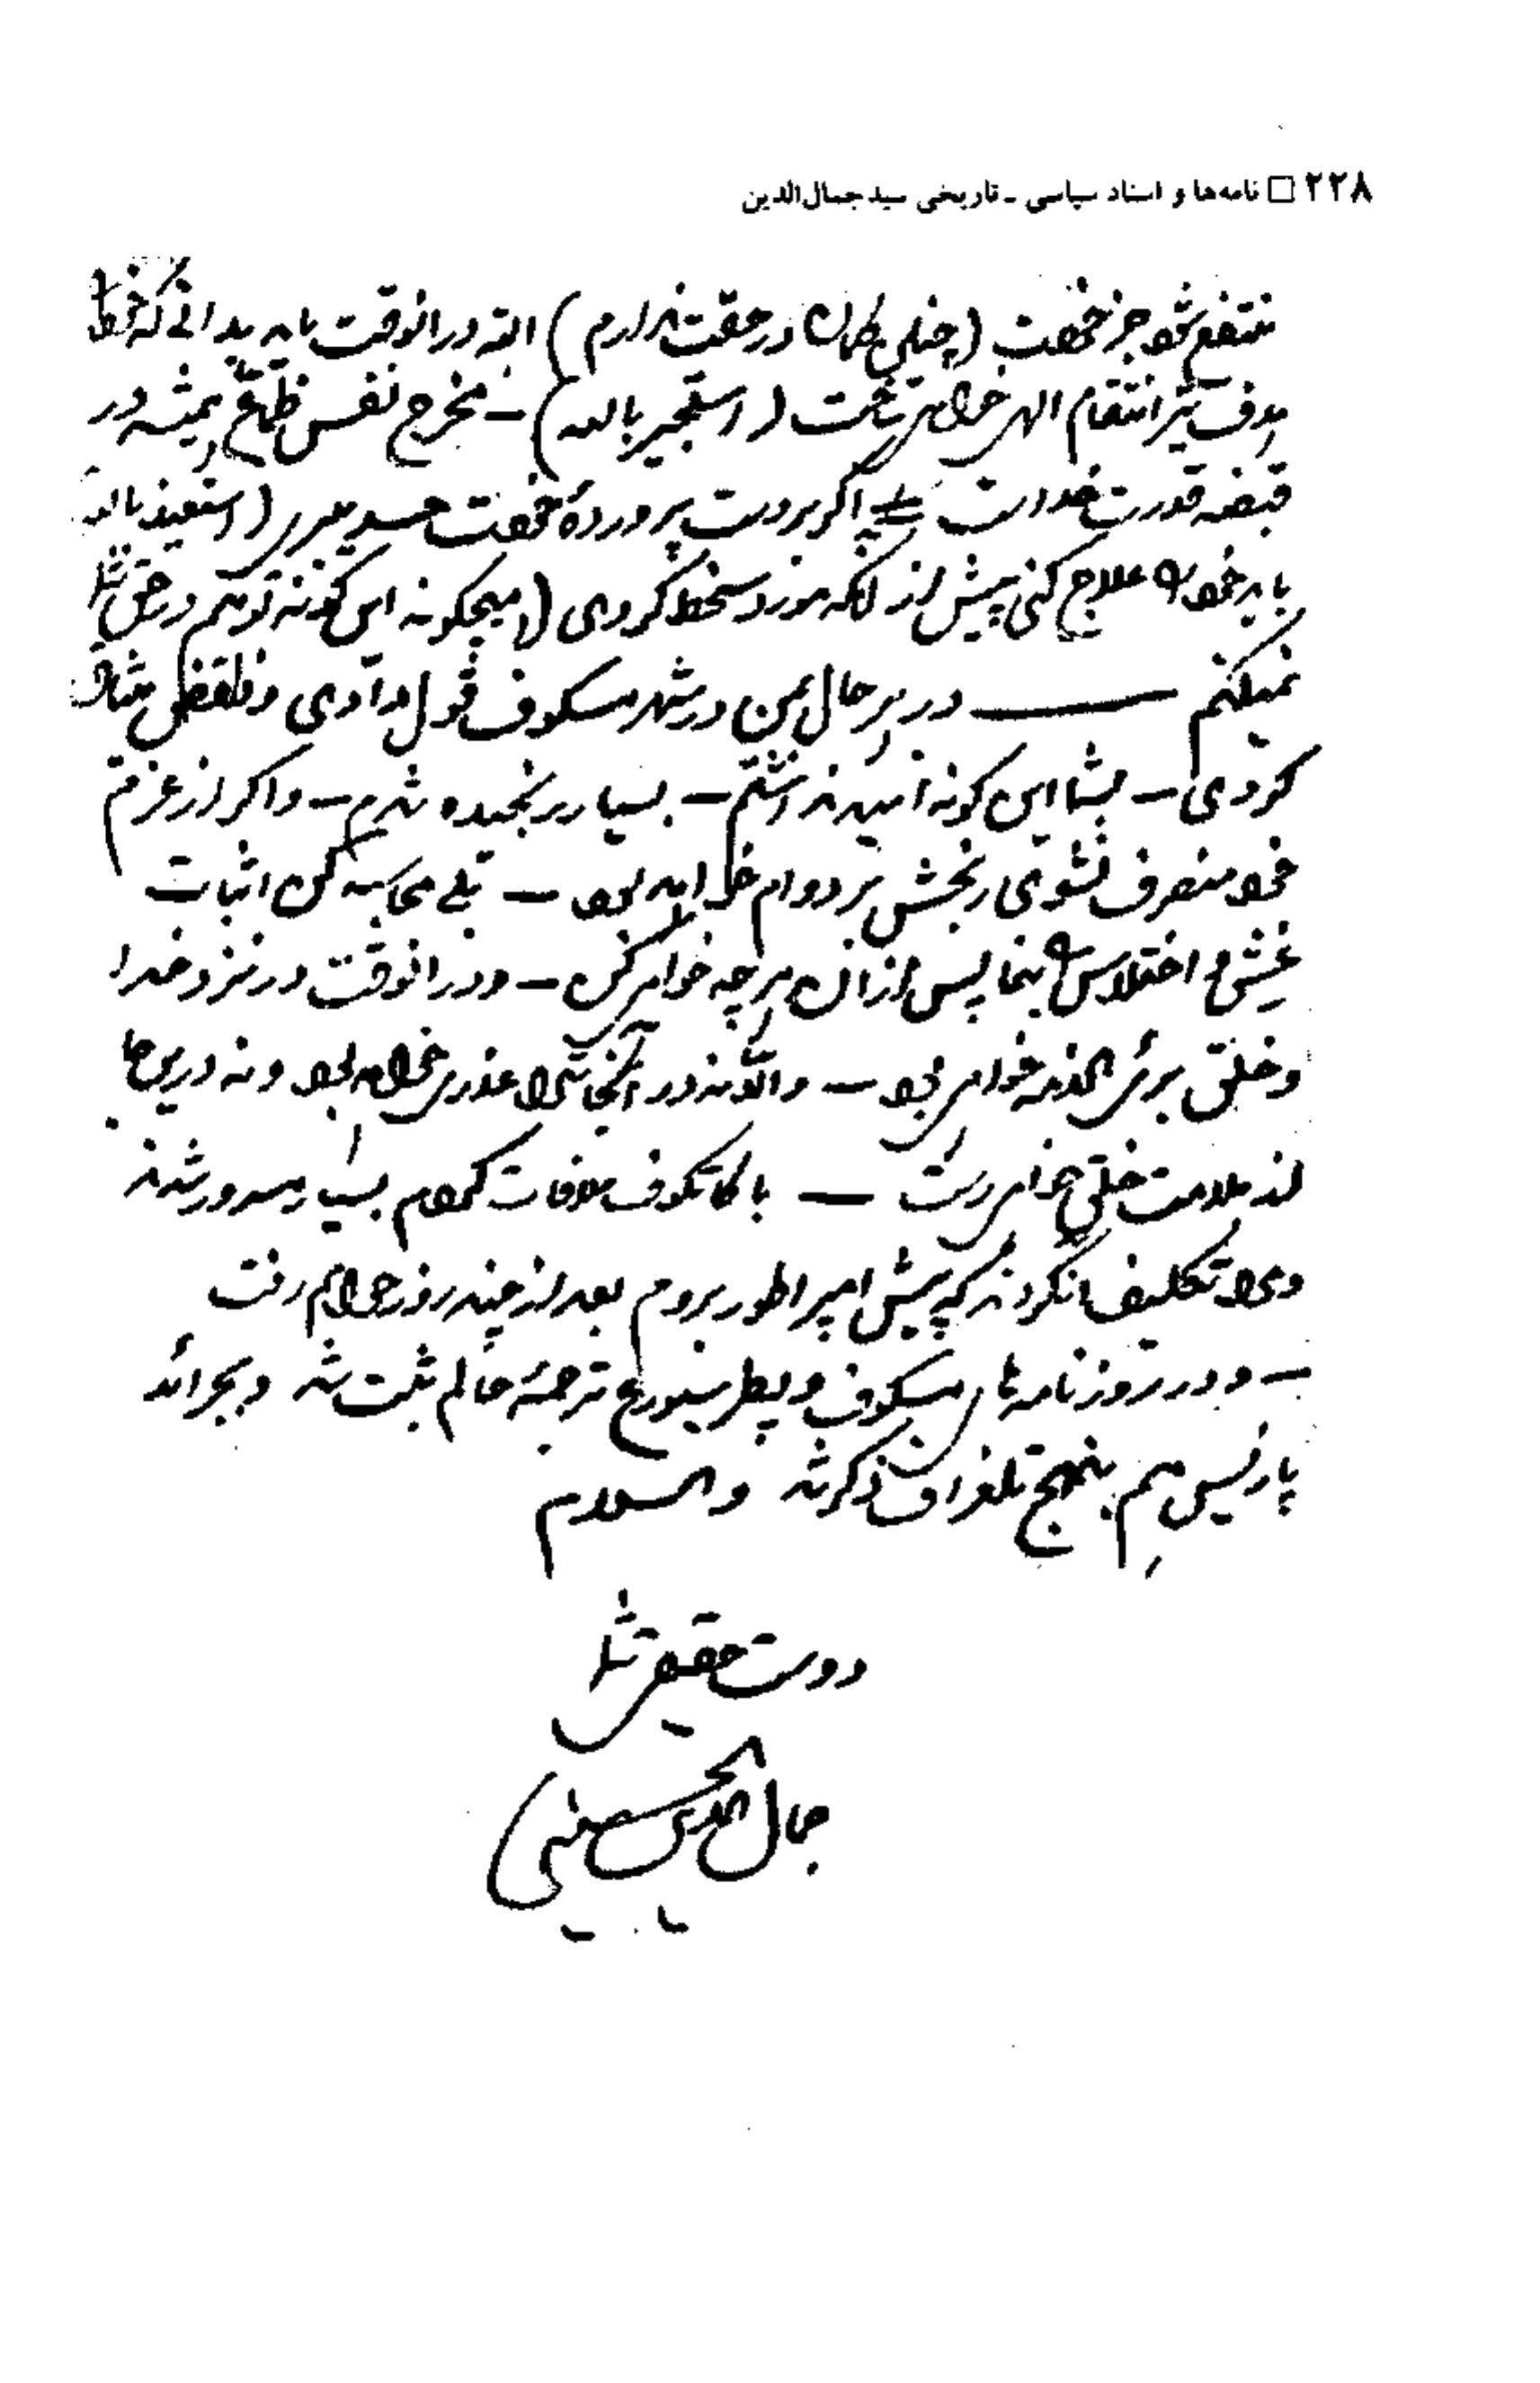 ۲۲۸ □ نامه‌ها و اسناد سیاسی ـ تاریخی سید جمال‌الدین
منتفع نشود جز خودت (چنین گمان در حقت ندارم) البته در انوقت باید بدانی که خود را
هدف تیر انتقام الهی خواهی ساخت (استجیر بالله) ـ مخرج نفس ظالم همیشه در
قبضه قدرت خداست اگر بر دوست پرورده خودت حسد میبری (استعیذ بالله
باید خود را علاج کنی پیش از آنکه مورد سخط گردی (هیچگونه این گونه توهم در حق شما
نمیکنم ـ در هر حال بمن در شهر مسکوف قول دادی و نقض میثاق
کردی ـ بشما این گونه امید نداشتم ـ بسیار رنجیده شدم ـ و اگر از عزم
خود منصرف نشوی رنجش بر دوام خواهد بود ـ بلی محاسبه کن اثبات
غش و اختلاس را بنما پس از ان هر چه خواهی کن ـ و در انوقت در نزد خدا
و خلق بری الذمه خواهی بود ـ والا نه در آنجا ترا عذری خواهد بود و نه در اینجا
از ملامت خلق خواهی رست ـ با کاتکوف ملاقات کردم بسیار مسرور شدند
و مرا تکلیف کردند که پیش امپراطور بروم بعد از چند روز خواهم رفت
ـ و در روزنامه های مسکوف و پطرسبورغ ترجمه حالم ثبت شد و بجرائد
پاریس هم بنهج تلغراف ذکر شد والسلام
دوست حقیقی شما
جمال الدین الحسینی